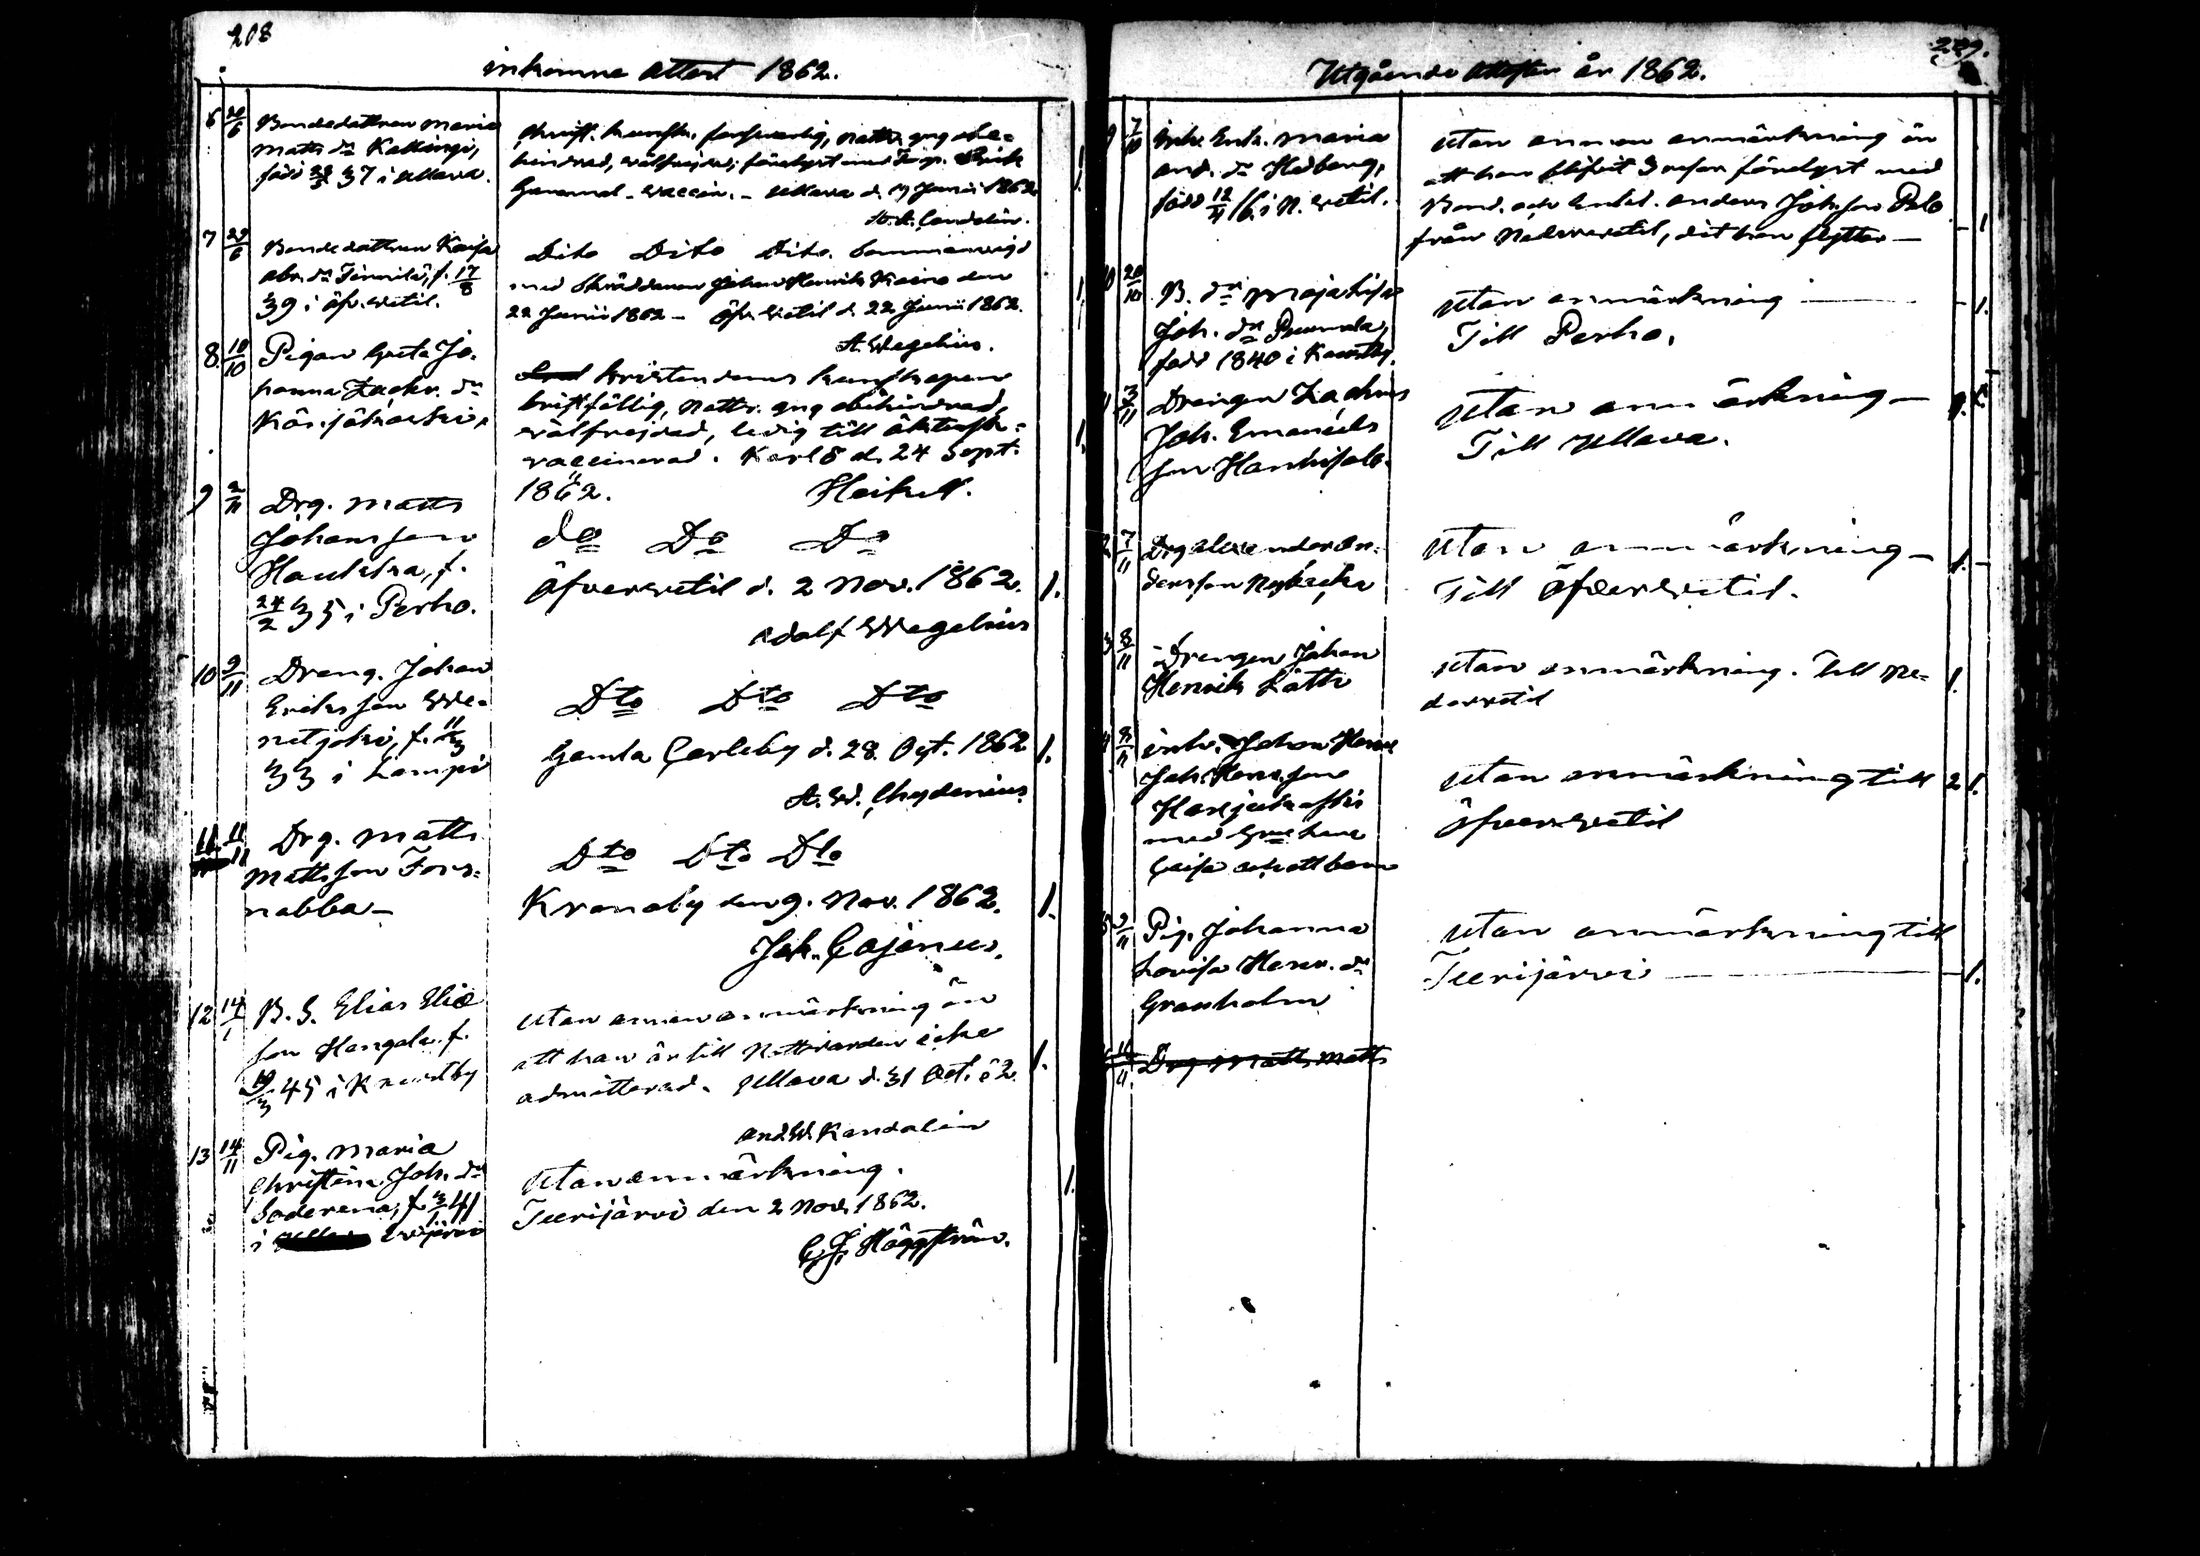 208
inkomne Attest 1862.
6 26/6 Bondedottren Maria
Matts dr Kallinge,
född 28/3 37 i Ullava.
Christ. kunsk. försvarlig, Nattv. gng obe=
hindrad, wälfrejdad; förelyst med
Gammal. Vaccin. - Ullava d. 17 Junii 1862
1.
7 29/6 Bondedottren Kajsa
Abr. dr f. 17/8
39 i Öfv. Wetil.
Dito Dito Dito. Sammanvigd
med Skräddaren Johan Henrik Kaino den
22 Junii 1862 - Öfv. Wetil d. 22 Junii 1862.
A. Wegelius.
1.
8. 10/10 Pigan Greta Jo-
hanna Zachr. dr
Känsäkoski,
kristendoms kunskapen
bristfällig, Nattv. gng obehindrad,
wälfrejdad, ledig till äktensk=
vaccinerad. Karlö d. 24 Sept.
1862. Heikell.
1.
9 2/11 Drg. Matts
Johansson
Haukka, f.
24/2 35 i Perho.
do Do Do
Öfverwetil d. 2 Nov. 1862.
Adolf Wegelius
1.
10 9/11 Dreng. Johan
Eriksson We-
netjoki, f. 11/3
33 i Lampi
Dto Dto Dto
Gamla Carleby d. 28. Oct. 1862
A. W. Chydenius
1.
11 11/11 Drg. Matts
Mattsson Fors=
nabba-
Dto Dto Dto
Kronoby den 9. Nov. 1862.
Joh. Cajanus.
1.
12 14/1 B. S. Elias Eliæ
son Hangala f.
45 i Kaustby
utan annan anmärkning än
att han är till Nattvarden icke
admitterad. Ullava d. 31 Oct. 62.
And. W. Kandelin
1.
13 14/11 Pig. Maria
Christina Joh. dr
f. 41
i
utan anmärkning.
Teerijärvi den 2 Nov. 1862.
C. J. Häggström.
1.
229.
Utgående Attester år 1862.
9 7/10 Inh. Enk. Maria
And. dr Hedberg,
född 12/4 16 i N. Wetil.
utan annan anmärkning än
att hon blifvit 3 resor förelyst med
Bond. och Enkl. Anders Johsson Palo
från Nederwetil, dit hon flyttar —
1
10 20/10 B. dr Maja Lisa
Joh. dr Puumala,
född 1840 i Kaustby.
utan anmärkning —
Till Perho.
1.
3/11 Drengen Zachris
Joh. Emanuels
son Hanhisalo
utan anmärkning —
Till Ullava.
7/11 Drg Alexander An-
dersson Nybacka
utan anmärkning —
Till Öfverwetil.
1.
3 8/11 Drengen Johan
Henrik Lätti
utan anmärkning. Till Ne-
derwetil
1.
4 8/11 inh. Johan Henr
Joh. Henr. son
Harjukoski
med
Caisa och ott barn
utan anmärkning till
Öfverwetil
2 1.
9/11 Pig. Johanna
Lovisa Henr. dr
Granholm
utan anmärkning till
Teerijärvi —
1.
Drg Matts Matts